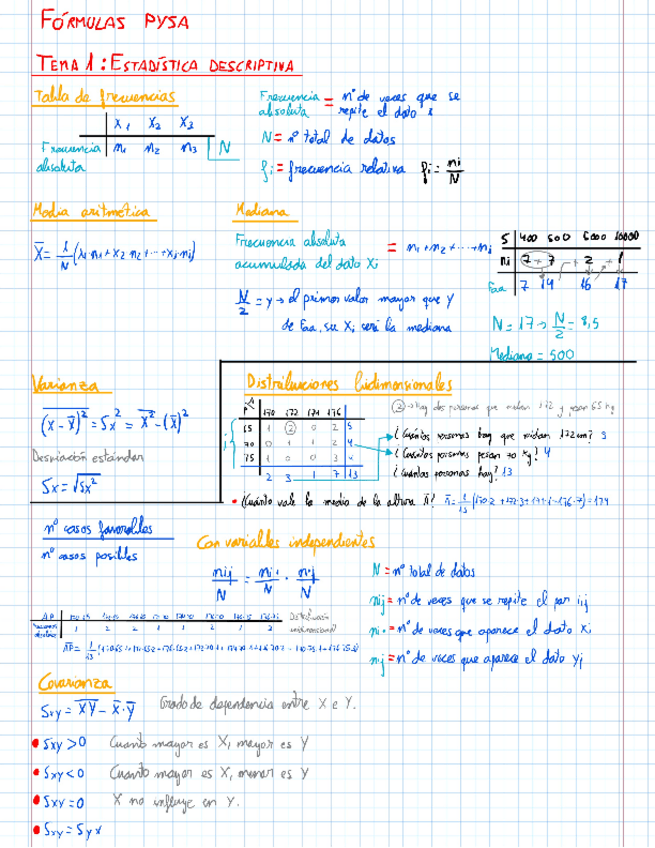 FÓRMULAS PYSA
TEMA 1: ESTADÍSTICA DESCRIPTIVA
Tabla de frecuencias
x₁ x₂ x₃
Frecuencia absoluta n₁ n₂ n₃ N
Frecuencia absoluta = nº de veces que se repite el dato i
N = nº total de datos
fi = frecuencia relativa fi = ni/N
Media aritmética
X̄ = 1/N (x₁·n₁ + x₂·n₂ + ... + xj·nj)
Mediana
Frecuencia absoluta acumulada del dato Xi = n₁ + n₂ + ... + ni
N/2 = y → el primer valor mayor que y
de Faa, su Xi será la mediana
S 400 500 6000 10000
ni 7 + 7 + 2 + 1
Faa 7 14 16 17
N = 17 → N/2 = 8,5
Mediana = 500
Varianza
(x - x̄)² = Sx² = x² - (x̄)²
Desviación estándar
Sx = √Sx²
Distribuciones bidimensionales
P A 170 172 174 176
65 1 2 0 2 5
70 0 1 1 2 4
75 1 0 0 3 4
2 3 1 7 13
② → hay dos personas que miden 172 y pesan 65 kg
¿Cuántas personas hay que midan 172cm? 3
¿Cuántas personas pesan 70 kg? 4
¿Cuántas personas hay? 13
¿Cuánto vale la media de la altura Ā?
nº casos favorables
nº casos posibles
Con variables independientes
nij/N = ni·/N · n·j/N
N = nº total de datos
nij = nº de veces que se repite el par i,j
ni· = nº de veces que aparece el dato xi
n·j = nº de veces que aparece el dato yj
Distribución unidimensional
Covarianza
Sxy = XY - X̄·Ȳ Grado de dependencia entre X e Y.
Sxy > 0 Cuanto mayor es X, mayor es Y
Sxy < 0 Cuanto mayor es X, menor es Y
Sxy = 0 X no influye en Y.
Sxy = Syx